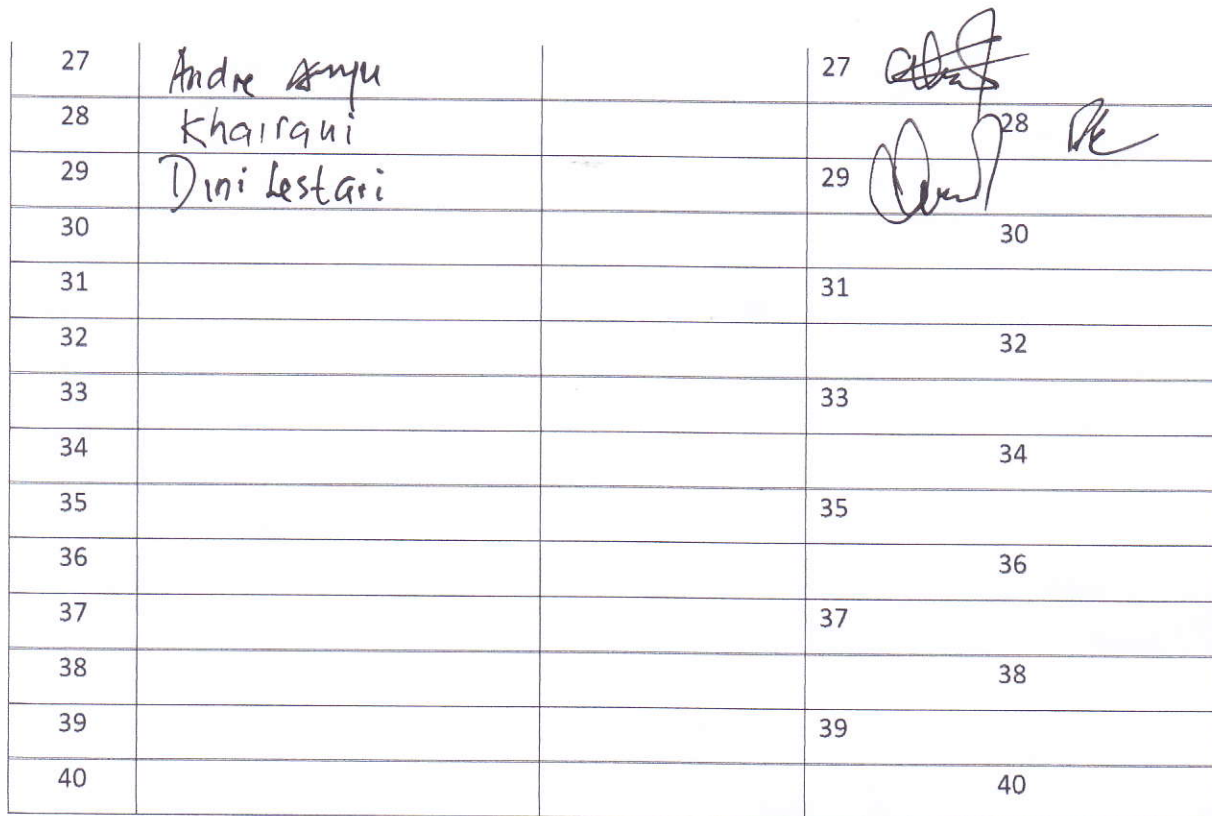 27 Andre 27
28 Khairani 28
29 Dini Lestari 29
30 30
31 31
32 32
33 33
34 34
35 35
36 36
37 37
38 38
39 39
40 40